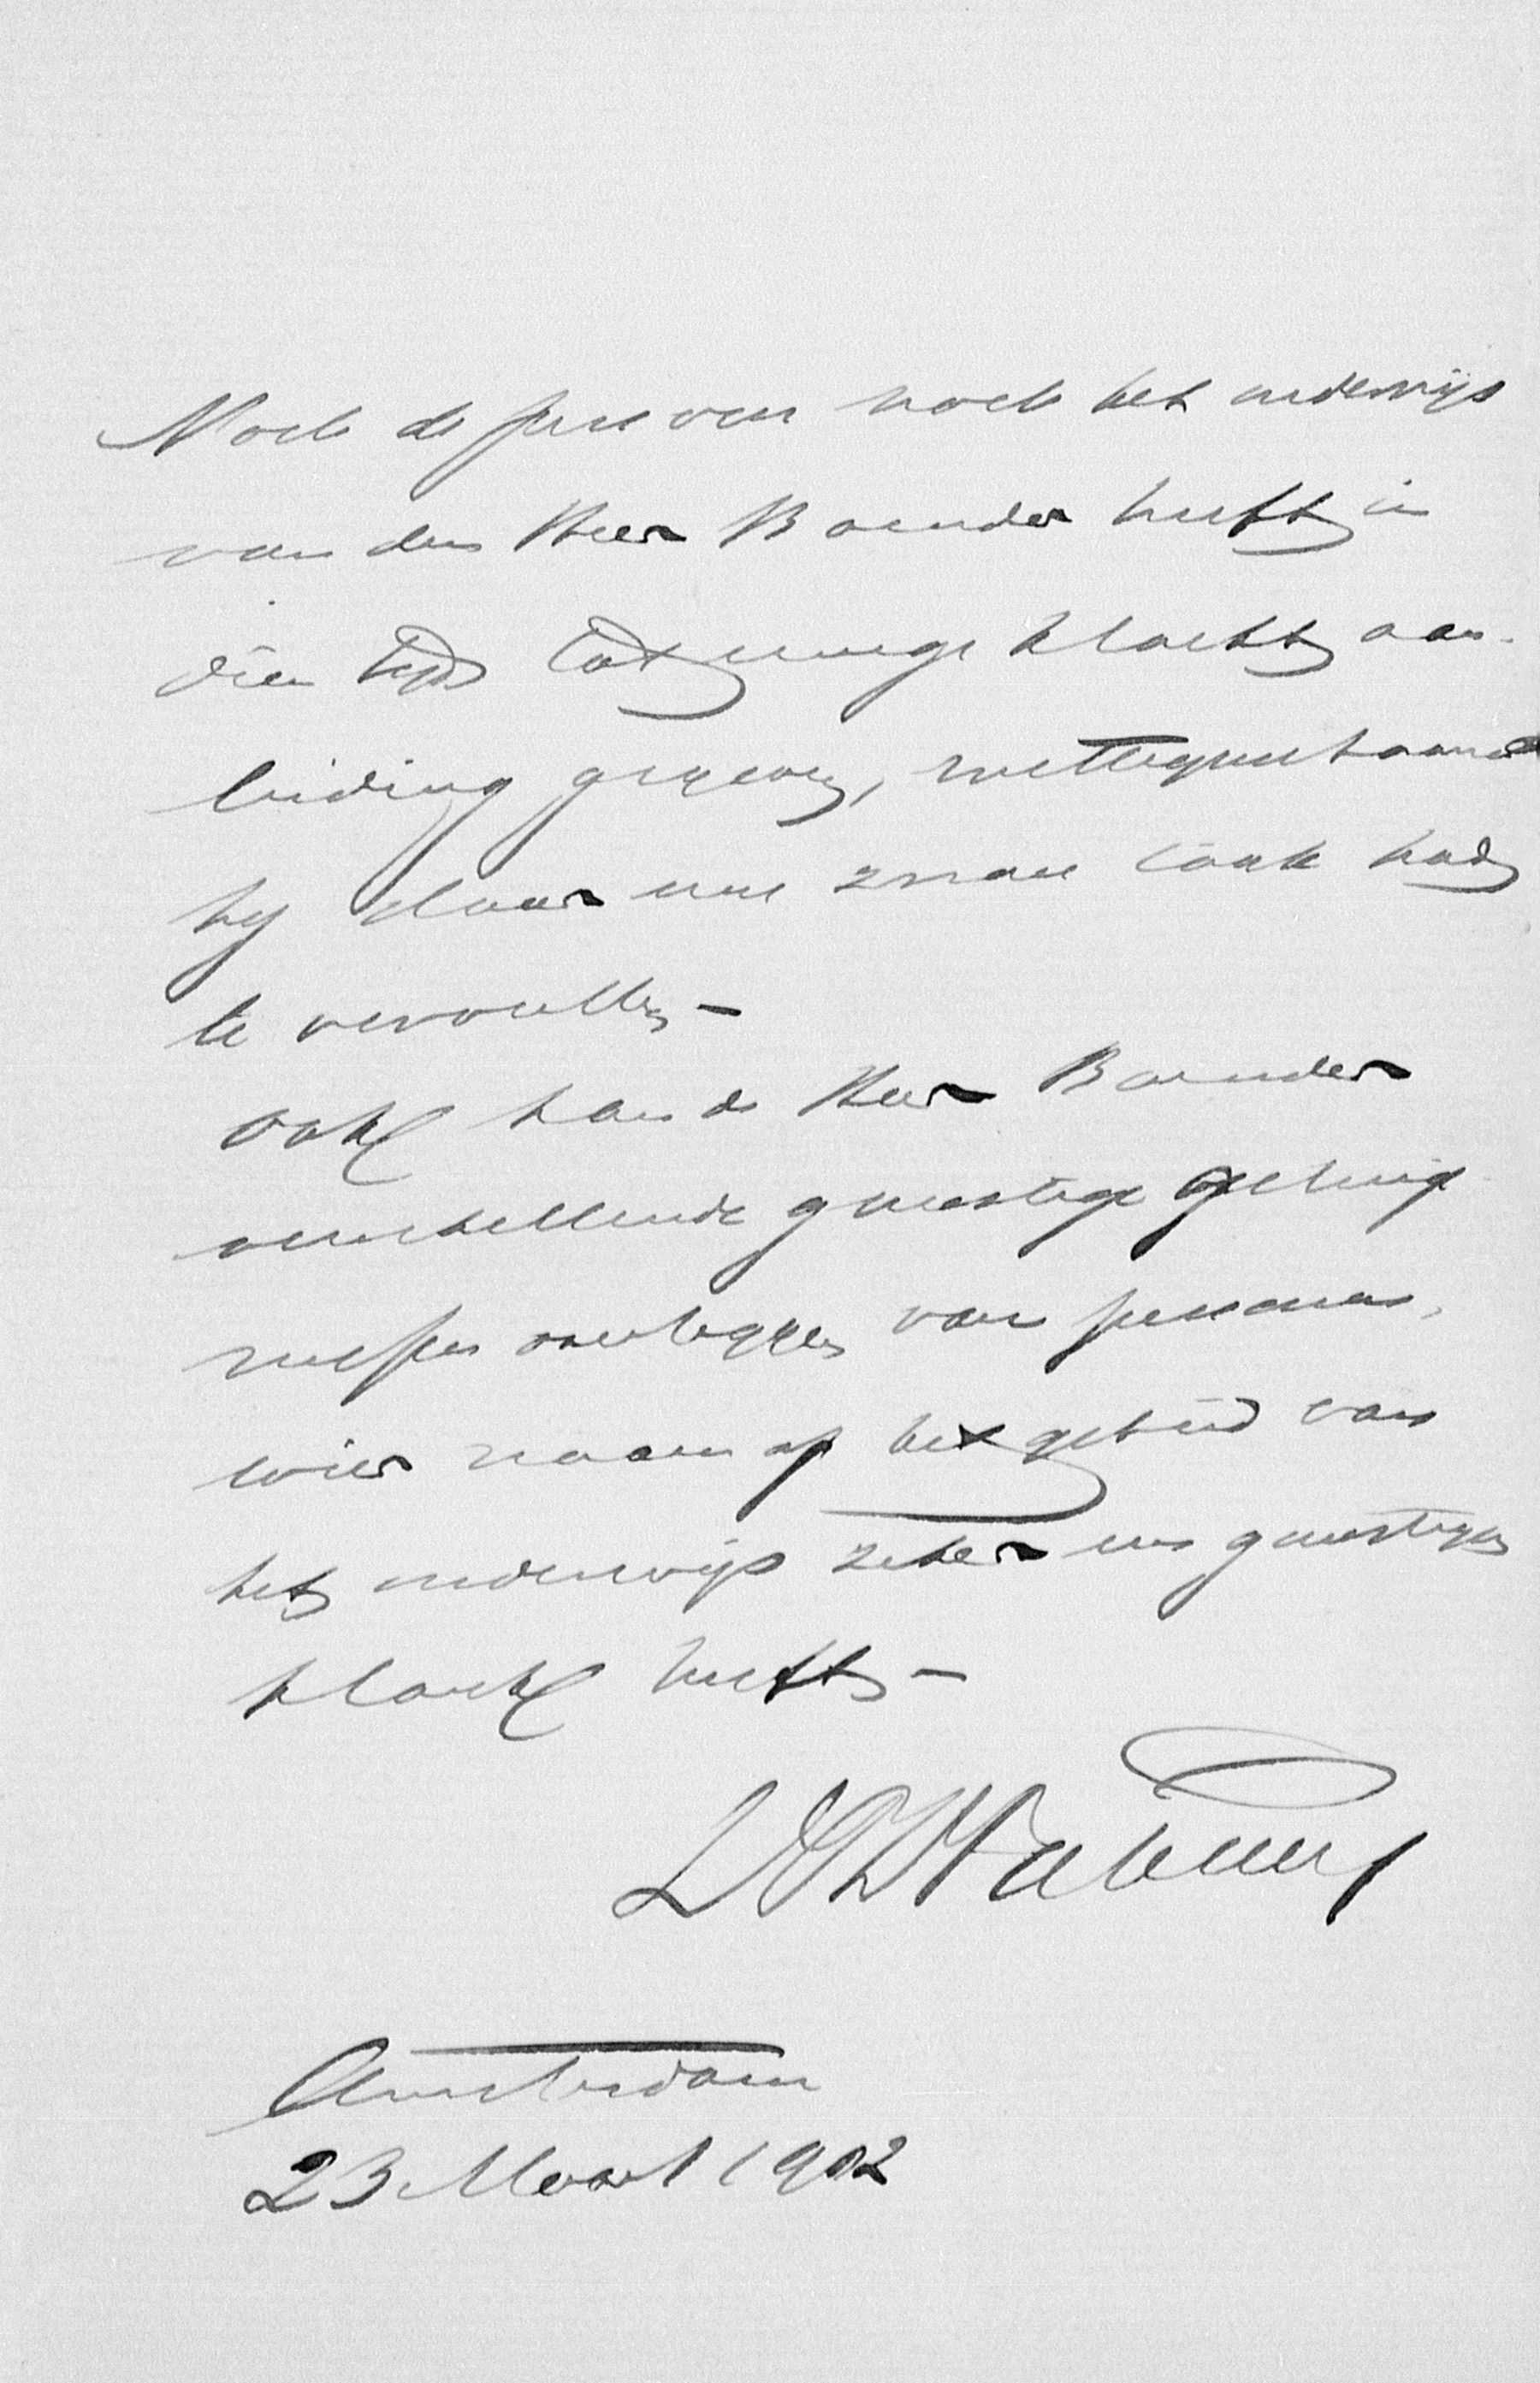 Noch de persoon noch het onderwijs
van den Heer Boender heeft in
dien tijd tot eenige klacht aan-
leiding gegeven, niettegenstaande
hij daar een zware taak had
te vervullen –
ook kan de Heer Boender
verschillende gunstige getuig-
nissen overleggen van personen,
wier naam op het gebied van
het onderwijs zeker een gunstigen
klank heeft –
Amsterdam
23 Maart 1902